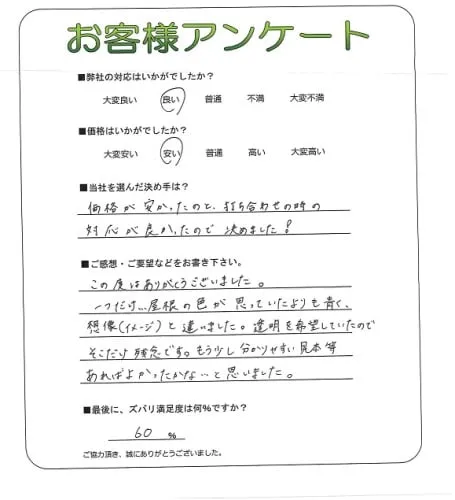 お客様アンケート
■弊社の対応はいかがでしたか？
大変良い 良い 普通 不満 大変不満
■価格はいかがでしたか？
大変安い 安い 普通 高い 大変高い
■当社を選んだ決め手は？
価格が安かったのと、打ち合わせの時の
対応が良かったので決めました！
■ご感想・ご要望などをお書き下さい。
この度はありがとうございました。
一つだけ…屋根の色が思っていたよりも青く、
想像(イメージ)と違いました。透明を希望していたので
そこだけ残念です。もう少し分かりやすい見本等
あればよかったかな、と思いました。
■最後に、ズバリ満足度は何%ですか？
60 %
ご協力頂き、誠にありがとうございました。